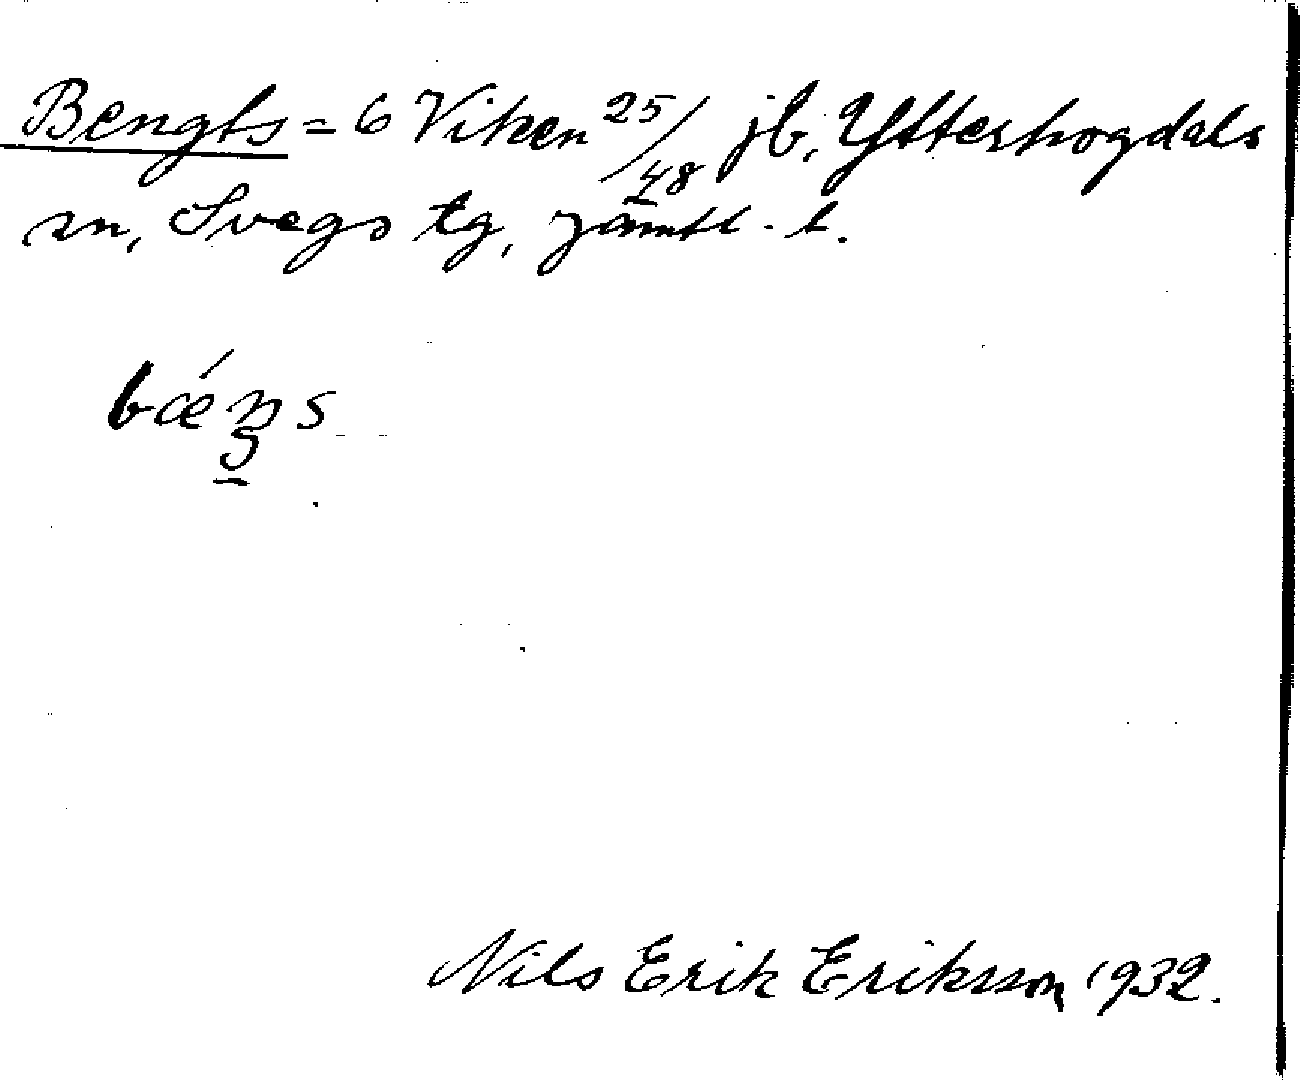 Bengts = 6 Viken 25/48 jb, Ytterhogdals
sn, Svegs tg, Jämtl. l.
Nils Erik Eriksson 1932.